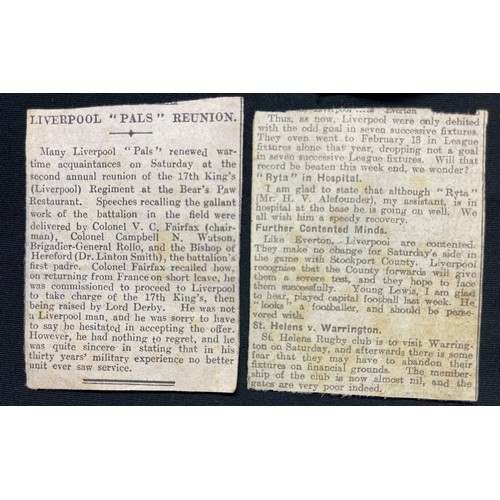 LIVERPOOL "PALS" REUNION.
Many Liverpool "Pals" renewed war-
time acquaintances on Saturday at the
second annual reunion of the 17th King's
(Liverpool) Regiment at the Bear's Paw
Restaurant. Speeches recalling the gallant
work of the battalion in the field were
delivered by Colonel V. C. Fairfax (chair-
man), Colonel Campbell N. Watson,
Brigadier-General Rollo, and the Bishop of
Hereford (Dr. Linton Smith), the battalion's
first padre. Colonel Fairfax recalled how,
on returning home from China in
he was commissioned to proceed to Liverpool
to take charge of the 17th King's, then
being raised by Lord Derby. He was not
a Liverpool man, and he was sorry to have
to say he hesitated in accepting the offer.
However, he had nothing to regret, and he
was quite sincere in stating that in his
thirty years' military experience no better
unit ever saw service.
Everton
Thus, as now, Liverpool were only debited
with the odd goal in seven successive fixtures.
They even went to February 13 in League
fixtures alone that year, dropping not a goal
in seven successive League fixtures. Will that
record be beaten this week end, we wonder?
"Ryta" in Hospital.
I am glad to state that although "Ryta"
(Mr. H. V. Alefounder), my assistant, is in
hospital at the base he is going on well. We
all wish him a speedy recovery.
Further Contented Minds.
Like Everton, Liverpool are contented.
They make no change for Saturday's side in
the game with Stockport County. Liverpool
recognise that the County forwards will give
them a severe test, and they hope to face
them successfully. Young Lewis, I am glad
to hear, played capital football last week. He
"looks" a footballer, and should be perse-
vered with.
St. Helens v. Warrington.
St. Helens Rugby club is to visit Warring-
ton on Saturday, and afterwards there is some
fear that they may have to abandon their
fixtures on financial grounds. The member-
ship of the club is now almost nil, and the
gates are very poor indeed.